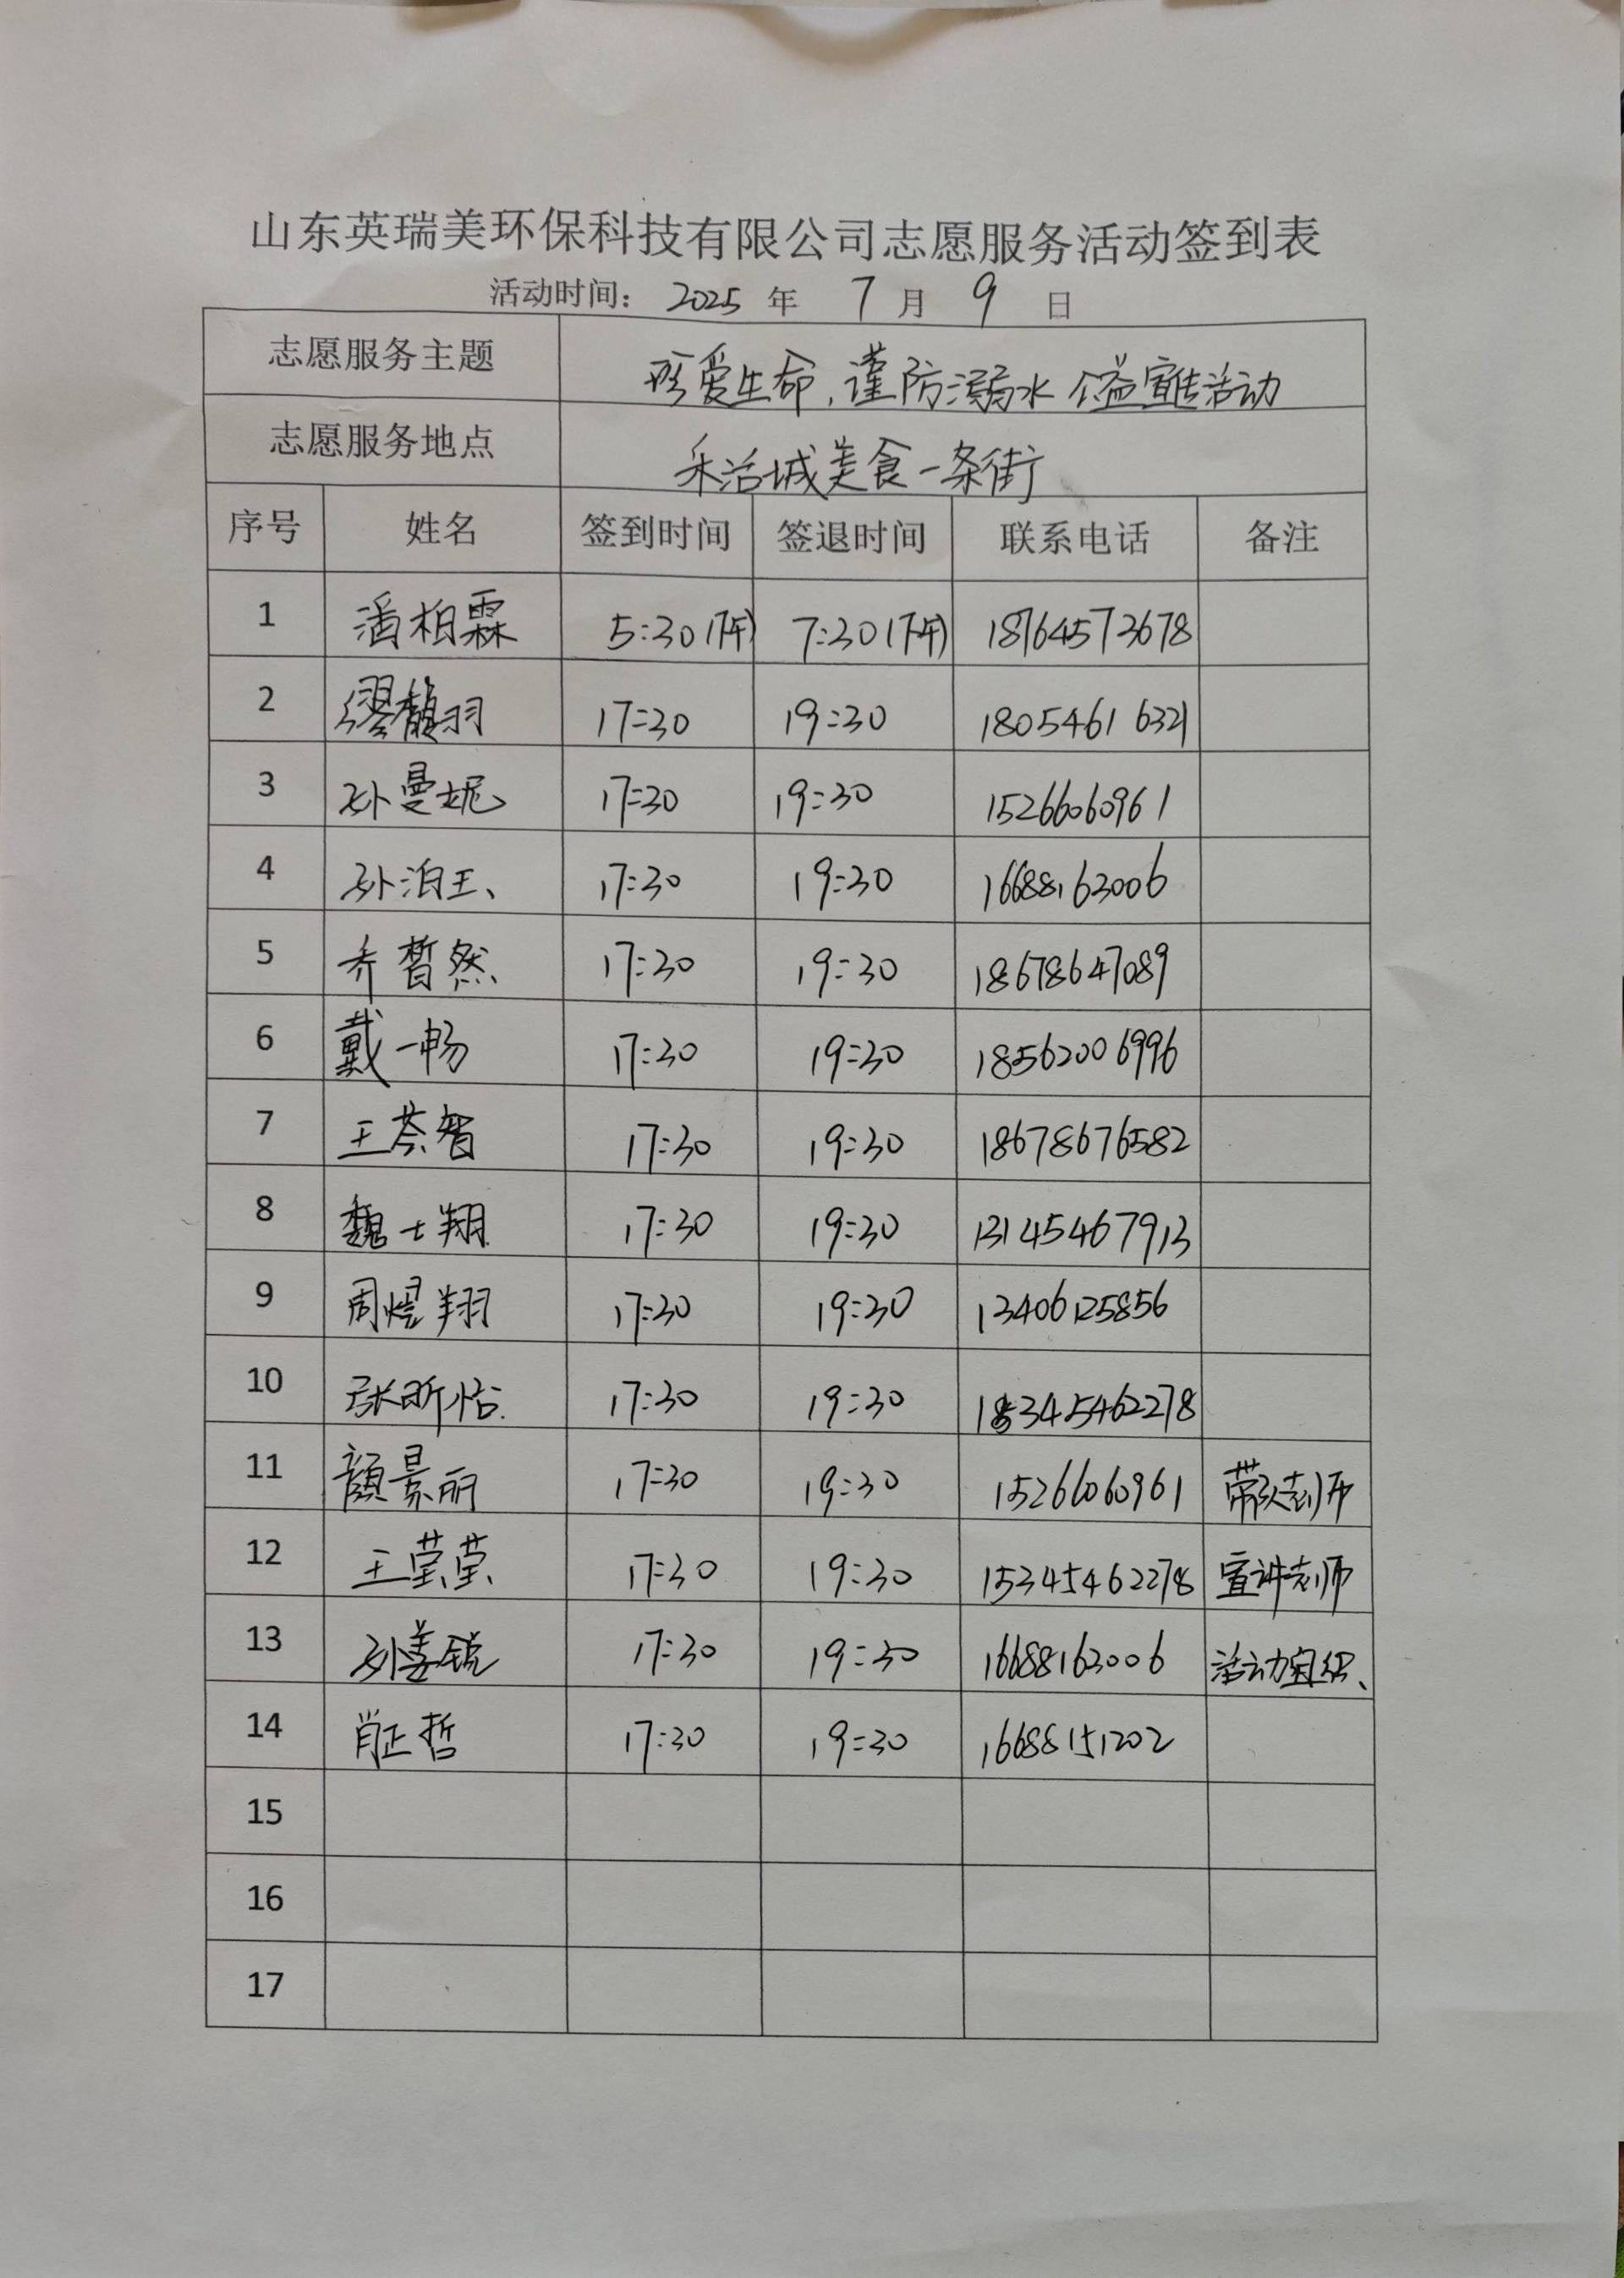 山东英瑞美环保科技有限公司志愿服务活动签到表
活动时间： 2025 年 7 月 9 日
志愿服务主题 珍爱生命，谨防溺水 公益宣传活动
志愿服务地点 禾活城美食一条街
序号 姓名 签到时间 签退时间 联系电话 备注
1 潘柏霖 5:30(下午) 7:30(下午) 18764573678
2 缪馥羽 17:30 19:30 18054616321
3 孙曼妮 17:30 19:30 15266060961
4 孙泊王、 17:30 19:30 16688163006
5 乔皙然 17:30 19:30 18678647089
6 戴一畅 17:30 19:30 18562006996
7 王荟智 17:30 19:30 18678676582
8 魏士翔 17:30 19:30 13145467913
9 周煜翔 17:30 19:30 13406125856
10 张昕怡 17:30 19:30 15345462278
11 颜景丽 17:30 19:30 15266060961 带队老师
12 王莹莹 17:30 19:30 15345462278 宣讲老师
13 孙姜锐 17:30 19:30 16688163006 活动组织、
14 肖正哲 17:30 19:30 16688151202
15
16
17